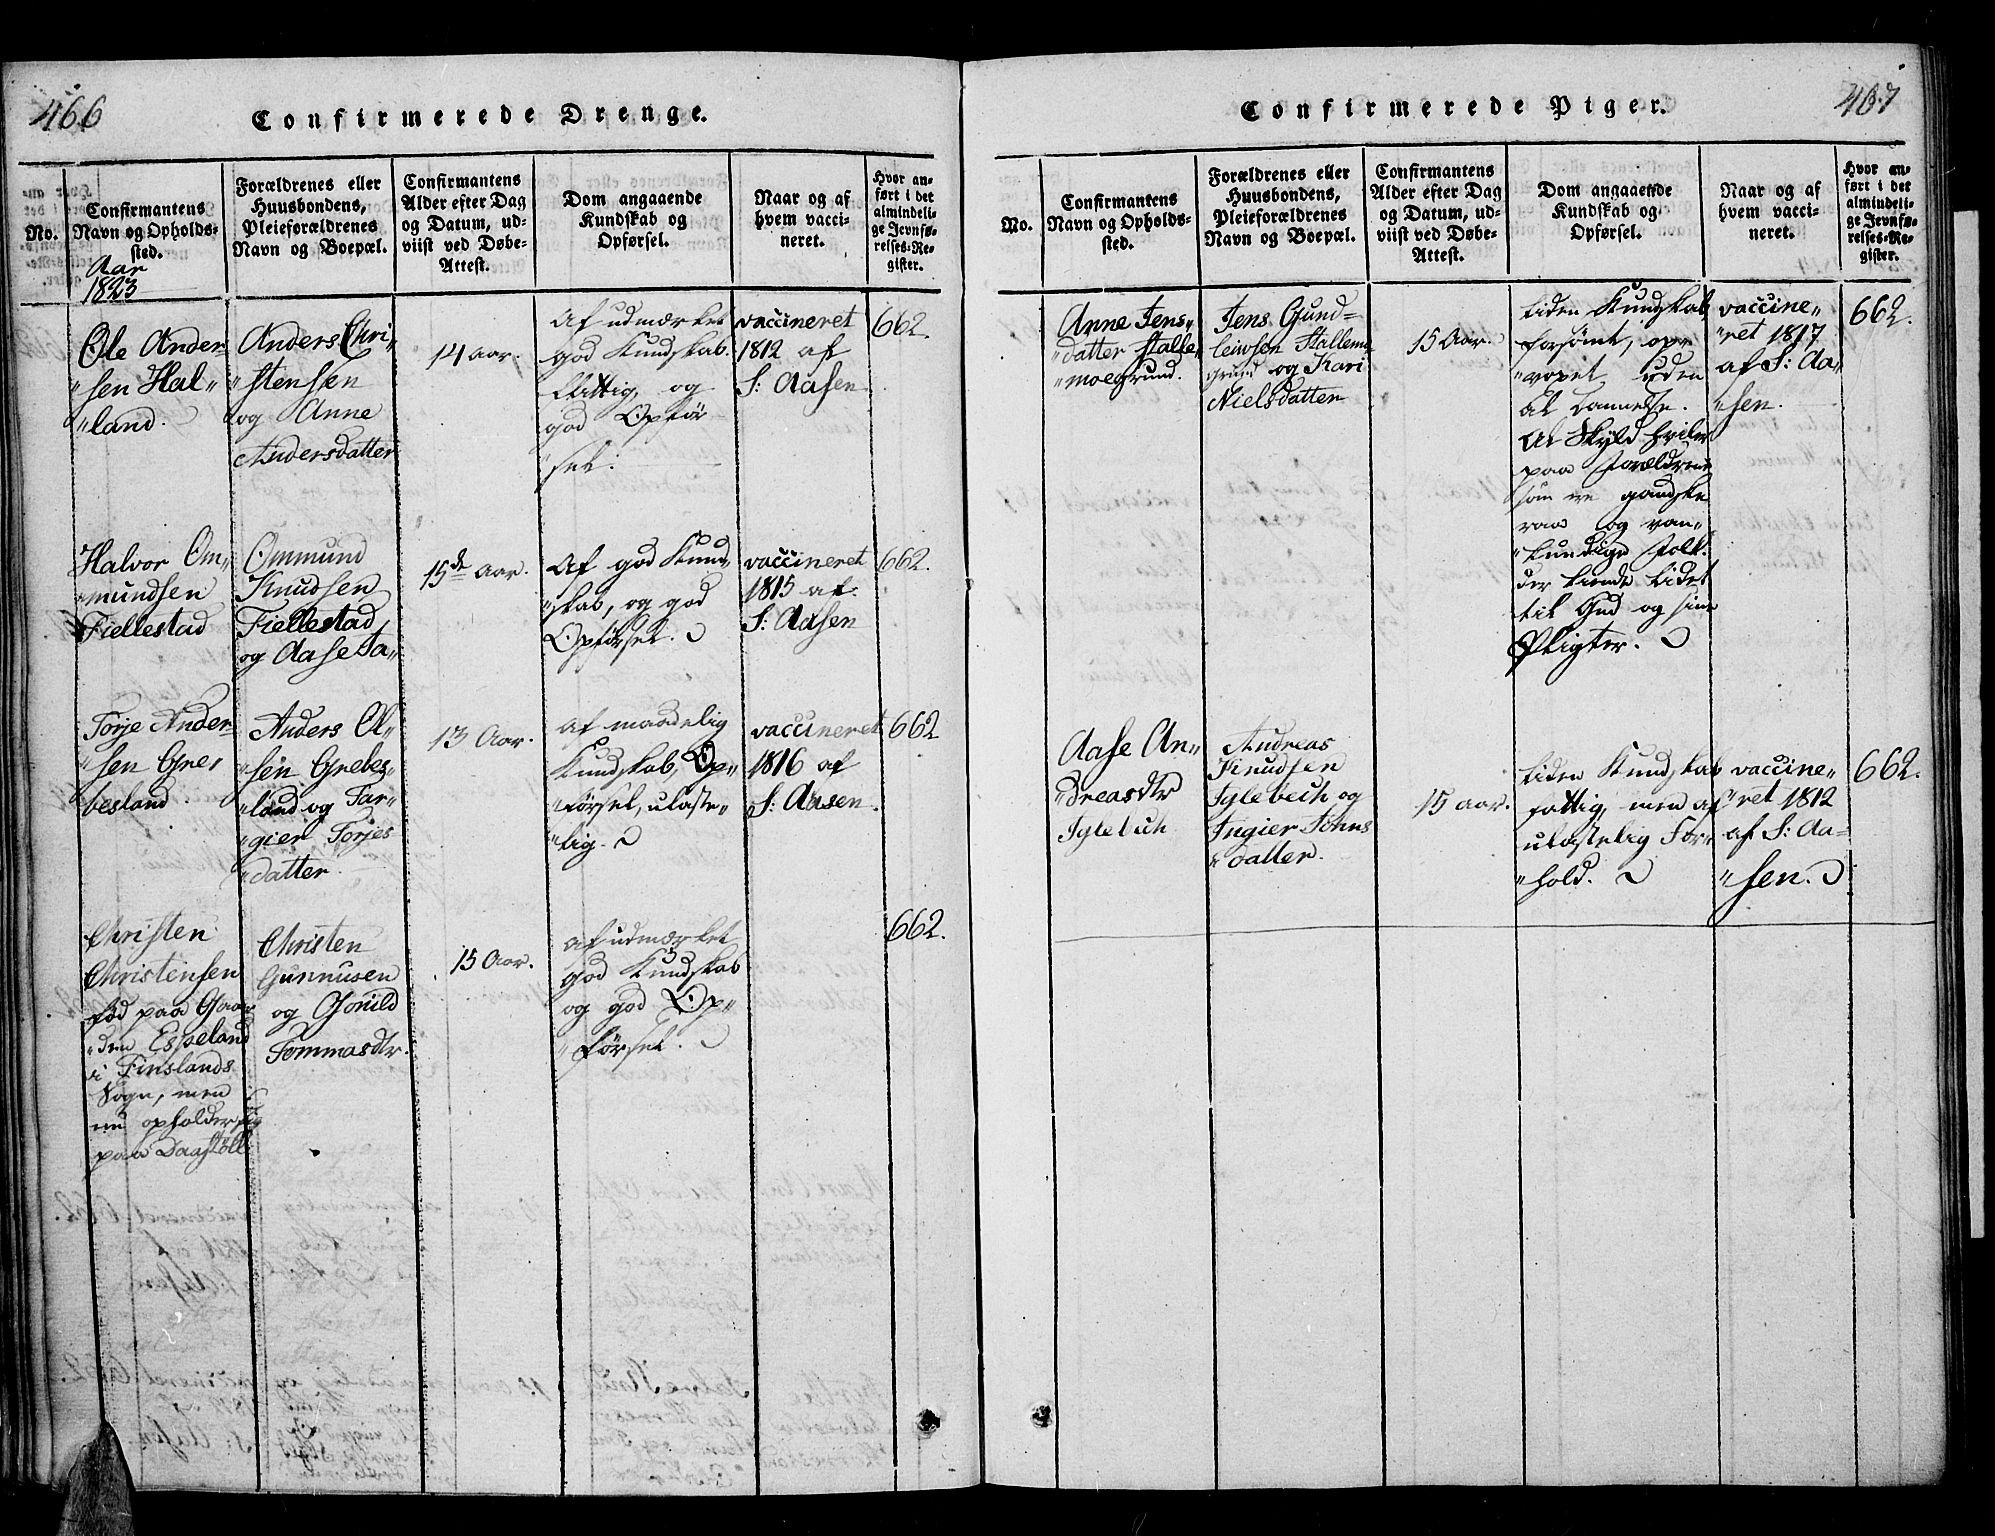 466
Confirmerede Drenge.
No.
Confirmantens
Navn og Opholds-
sted.
Aar
1823
Forældrenes eller
Huusbondens,
Pleieforældrenes
Navn og Boepæl.
Confirmantens
Alder efter Dag
og Datum, ud-
viist ved Døbe-
Attest.
Dom angaaende
Kundskab og
Opførsel.
Naar og af
hvem vacci-
neret.
Hvor an-
ført i det
almindeli-
ge Jevnfø-
relses-Re-
gister.
Ole Ander-
"sen Hal-
"land.
Anders Chri-
"stensen
og Anne
Andersdatter
14 aar.
Af udmærket
god Kundskab.
flittig, og
god Opfør
sel.
vaccineret
1812 af
S: Aasen
662.
Halvor Om-
"mundsen
Fiellestad
Ommund
Knudsen
Fiellestad
og Aase Ta-
15de Aar.
Af god Kund
"skab, og god
Opførsel.
vaccineret
1815 af
S: Aasen
662.
Torje Ander-
"sen Gre-
besland.
Anders Ol-
"sen Grebes-
"land og Tar-
gier Torjes
"datter.
13 Aar.
af maadelig
Kundskab, Op-
"førsel, ulaste-
"lig.
vaccineret
1816 af
S: Aasen.
662
Christen
Christensen
fød paa Gaar
"den Espeland
i Finslands
Sogn, men
nu opholder sig
paa Daastöll
Christen
Gunnusen
og Gonild
Tommasdtr.
15 Aar.
af udmærket
god Kundskab
og god Op-
"førsel.
662.
467
Confirmerede Piger.
No.
Confirmantens
Navn og Opholds-
sted.
Forældrenes eller
Huusbondens,
Pleieforældrenes
Navn og Boepæl.
Confirmantens
Alder efter Dag
og Datum, ud-
viist ved Døbe-
Attest.
Dom angaaende
Kundskab og
Opførsel.
Naar og af
hvem vacci-
neret.
Hvor an-
ført i det
almindeli-
ge Jevnfø-
relses-Re-
gister.
Anne Jens-
"datter Stalle-
"moegrund.
Jens Gund-
leivsen Stallemo
grund og Kari
Nielsdatter
15 Aar.
liden Kundskab
forsømt, op-
"voxet uden
al Dannelse.
Al Skyld hviler
paa Forældrene
som ere gandske
raae og van-
"kundige Folk.
der kiende lidet
til Gud og sine
Pligter.
vaccine-
"ret 1817
af S: Aa-
"sen.
662.
Aase An-
"dreasdtr
Iglebech
Andreas
Knudsen
Iglebech og
Ingier Johns
"datter.
15 aar.
liden Kundskab
fattig, men af
ulastelig For-
"hold.
vaccine-
"ret 1812
af S: Aa-
"sen.
662.